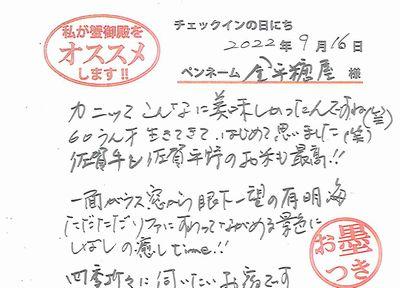 私が蟹御殿を
オススメ
します!!
チェックインの日にち
2022年9月16日
ペンネーム 金平糖屋 様
カニッてこんなに美味しかったんですね(笑)
60うん才生きてきてはじめて思いました(笑)
佐賀牛も佐賀平野のお米も最高!!
一面ガラス窓から眼下一望の有明海
ただただソファにすわってながめる景色に
しばしの癒しtime!!
四季折々に伺いたいお宿です
お墨
つき